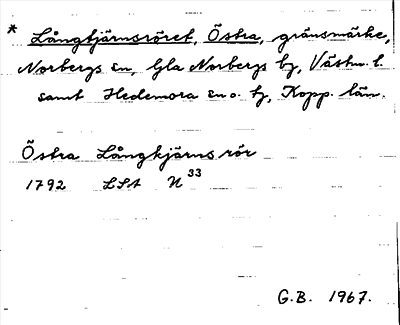 * Långtjärnsröret, Östra, gränsmärke,
Norbergs sn, Gla Norbergs bg, Västm. l.
samt Hedemora sn o. bg, Kopp. län.
Östra Långkjärns rör
1792 LSA N 33
G.B. 1967.